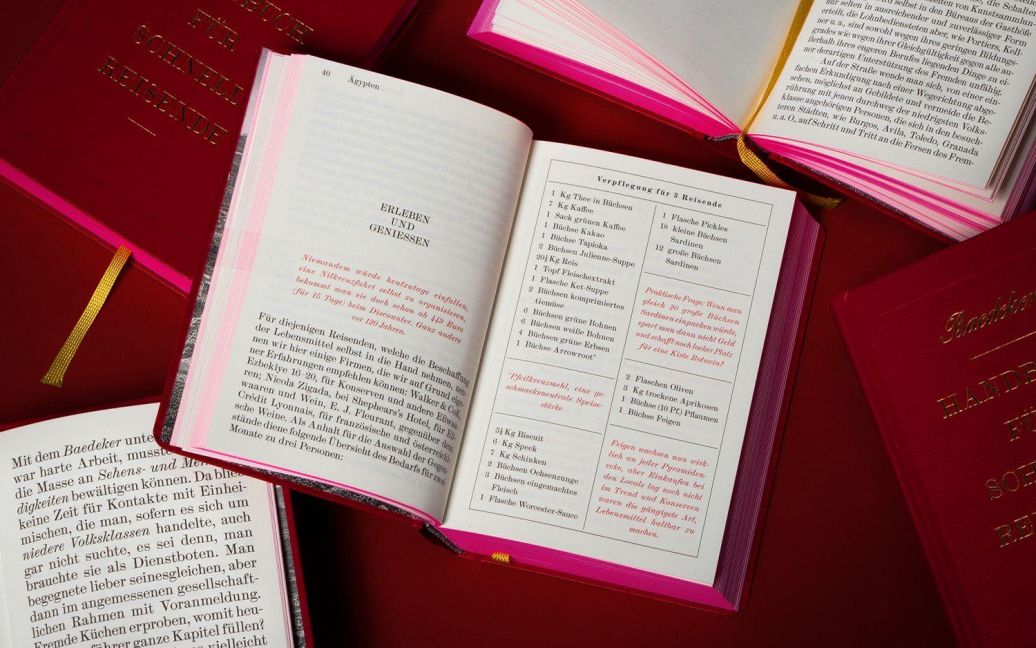 BUCH
FÜR
SCHNELL
REISENDE
40 Ägypten
ERLEBEN
UND
GENIESSEN
Niemandem würde heutzutage einfallen,
eine Nilkreuzfahrt selbst zu organisieren,
bekommt man sie doch schon ab 449 Euro
(für 15 Tage) beim Discounter. Ganz anders
vor 120 Jahren.
Für diejenigen Reisenden, welche die Beschaffung
der Lebensmittel selbst in die Hand nehmen, nen-
nen wir hier einige Firmen, die wir auf Grund eige-
ner Erfahrungen empfehlen können: Walker & Co.,
Ezbekîye 16–20, für Konserven und andere Eßwa-
ren; Nicola Zigada, bei Shephears's Hotel, für Eß-
waaren und Wein, E. J. Fleurant, gegenüber dem
Crédit Lyonnais, für französische und österreichi-
sche Weine. Als Anhalt für die Auswahl der Gegen-
stände diene folgende Übersicht des Bedarfs für zwei
Monate zu drei Personen:
Verpflegung für 3 Reisende
1 Kg Thee in Büchsen
7 Kg Kaffee
1 Sack grünen Kaffee
1 Büchse Kakao
1 Büchse Tapioka
2 Büchsen Julienne-Suppe
20½ Kg Reis
1 Topf Fleischextrakt
1 Flasche Ket-Suppe
2 Büchsen komprimiertes
Gemüse
6 Büchsen grüne Bohnen
6 Büchsen weiße Bohnen
4 Büchsen grüne Erbsen
1 Büchse Arrowroot*
*Pfeilkreuzmehl, eine ge-
schmacksneutrale Speise-
stärke
5½ Kg Biscuit
6 Kg Speck
7 Kg Schinken
2 Büchsen Ochsenzunge
3 Büchsen eingemachtes
Fleisch
1 Flasche Worcester-Sauce
1 Flasche Pickles
18 kleine Büchsen
Sardinen
12 große Büchsen
Sardinen
Praktische Frage: Wenn man
gleich 20 große Büchsen
Sardinen einpacken würde,
spart man dann nicht Geld
und schafft noch locker Platz
für eine Kiste Rotwein?
2 Flaschen Oliven
3 Kg trockene Aprikosen
1 Büchse (10 Pf.) Pflaumen
1 Büchse Feigen
Feigen wachsen nun wirk-
lich an jeder Pyramiden-
ecke, aber Einkaufen bei
den Locals lag noch nicht
im Trend und Konserven
waren die gängigste Art,
Lebensmittel haltbar zu
machen.
von Kunstsammlun-
selbst in den Büreaus der Gasthöfe
mir selten in ausreichender und zuverlässiger Form
erteilt, die Lohnbediensteten aber, wie Portiers, Kell-
ner u. a., sind sowohl wegen ihres geringen Bildungs-
grades wie wegen ihrer Gleichgültigkeit gegen alle au-
ßerhalb ihres engeren Berufes liegenden Dinge zu ei-
ner derartigen Unterstützung des Fremden unfähig.
Auf der Straße wende man sich, von einer ein-
fachen Erkundigung nach einer Wegerichtung abge-
sehen, möglichst an Gebildete und vermeide die Be-
rührung mit jenen durchweg der niedrigsten Volks-
klasse angehörigen Personen, die sich in den besuch-
teren Städten, wie Burgos, Avila, Toledo, Granada
u. a. O., auf Schritt und Tritt an die Fersen des Frem-
Mit dem Baedeker unte
war harte Arbeit, musste
die Masse an Sehens- und Mer
digkeiten bewältigen können. Da blie
keine Zeit für Kontakte mit Einhei-
mischen, die man, sofern es sich um
niedere Volksklassen handelte, auch
gar nicht suchte, es sei denn, man
brauchte sie als Dienstboten. Man
begegnete lieber seinesgleichen, aber
dann im angemessenen gesellschaft-
lichen Rahmen mit Voranmeldung.
Fremde Küchen erproben, womit heu-
führer ganze Kapitel füllen?
vielleicht
Baedeke
HANDB
FÜ
SC
RE